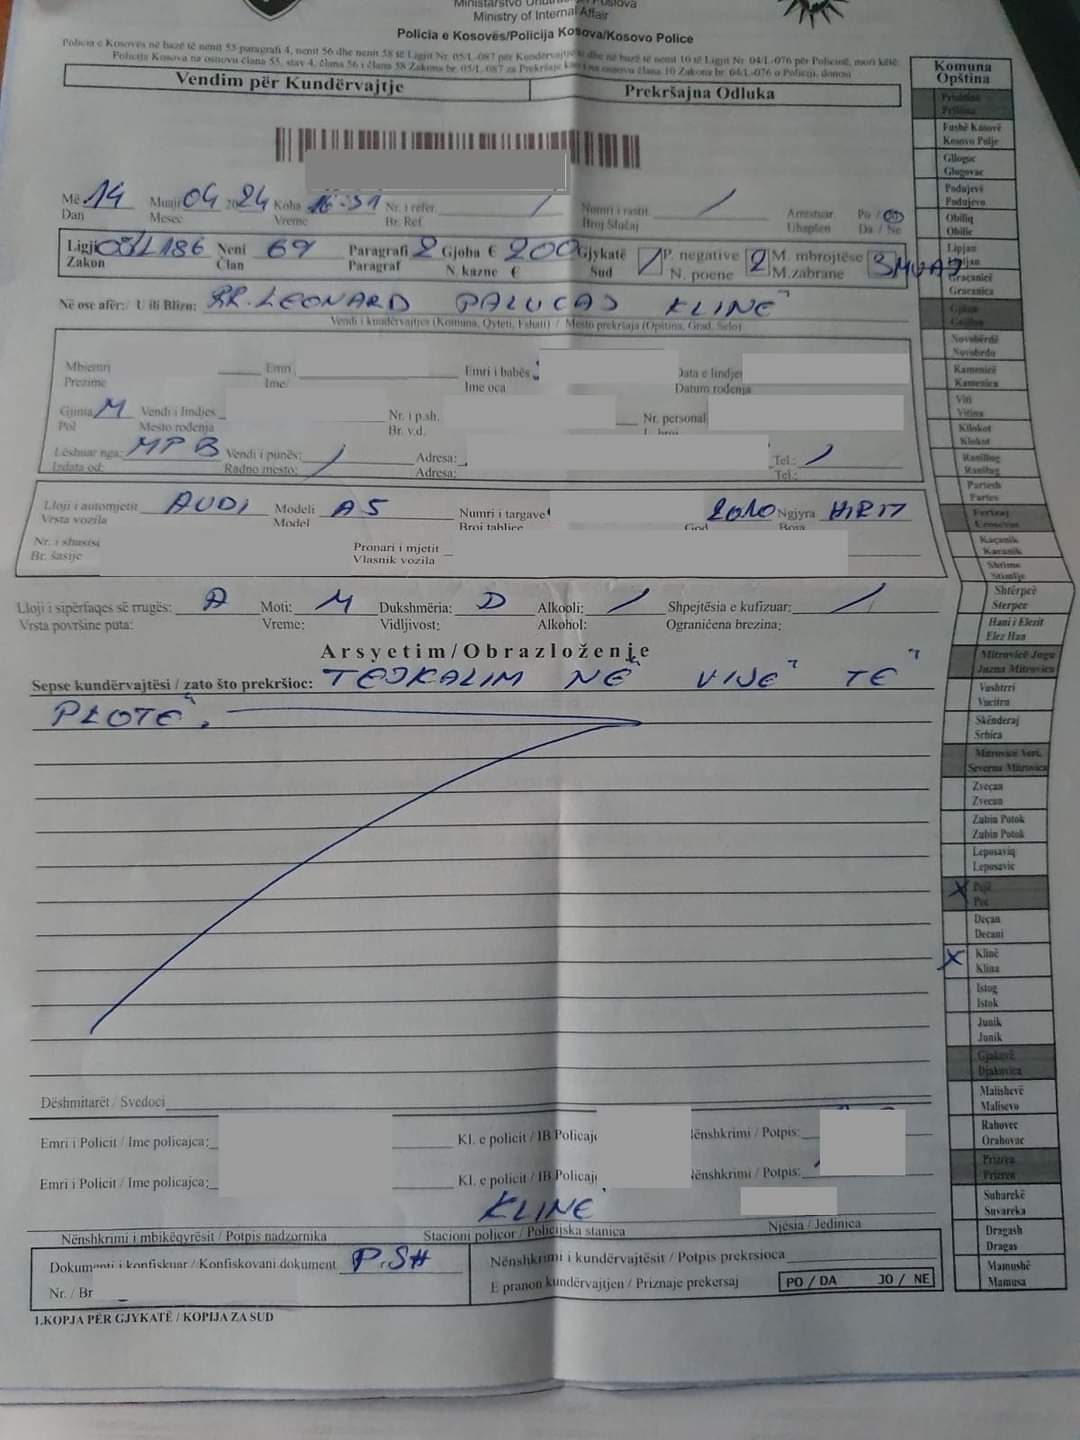 Ministry of Internal Affair
Policia e Kosovës/Policija Kosova/Kosovo Police
Policia e Kosovës në bazë të nenit 55 paragrafi 4, nenit 56 dhe nenit 58 të Ligjit Nr. 05/L-087 për Kundërvajtje dhe në bazë të nenit 10 të Ligjit Nr. 04/L-076 për Policinë, mori këtë:
Policija Kosova na osnovu člana 55, stav 4, člana 56 i člana 58 Zakona br. 05/L-087 za Prekršaje i na osnovu člana 10 Zakona br. 04/L-076 o Policiji, donosi
Vendim për Kundërvajtje Prekršajna Odluka
Më 14 Muaji 04 2024 Koha 16:31 Nr. i refer / Numri i rastit / Arrestuar Po / Jo
Dan Mesec Vreme Br. Ref Broj Slučaj Uhapšen Da / Ne
Ligji 08/L186 Neni 69 Paragrafi 2 Gjoba € 200 Gjykatë / P. negative 2 M. mbrojtëse 3 MUAJ
Zakon Član Paragraf N. kazne € Sud N. poene M.zabrane
Në ose afër: U ili Blizu: RR. LEONARD PALUCAJ KLINË
Vendi i kundërvajtjes (Komuna, Qyteti, Fshati) / Mesto prekršaja (Opština, Grad, Selo)
Mbiemri Emri Emri i babës Data e lindjes
Prezime Ime Ime oca Datum rođenja
Gjinia M Vendi i lindjes Nr. i p.sh. Nr. personal
Pol Mesto rođenja Br. v.d.
Lëshuar nga: MPB Vendi i punës: / Adresa: Tel.: /
Izdata od: Radno mesto: Adresa: Tel.:
Lloji i automjetit AUDI Modeli A5 Numri i targave 2010 Ngjyra HIRIT
Vrsta vozila Model Broj tablice God Boja
Nr. i shasisë Pronari i mjetit
Br. šasije Vlasnik vozila
Lloji i sipërfaqes së rrugës: A Moti: M Dukshmëria: D Alkooli: / Shpejtësia e kufizuar: /
Vrsta površine puta: Vreme: Vidljivost: Alkohol: Ograničena brezina:
Arsyetim/Obrazloženje
Sepse kundërvajtësi / zato što prekršioc: TEJKALIM NË VIJË TË
PLOTË.
Dëshmitarët / Svedoci
Emri i Policit / Ime policajca: Kl. e policit / IB Policaje Nënshkrimi / Potpis:
Emri i Policit / Ime policajca: Kl. e policit / IB Policaje Nënshkrimi / Potpis:
KLINË
Nënshkrimi i mbikëqyrësit / Potpis nadzornika Stacioni policor / Policijska stanica Njësia / Jedinica
Dokumenti i konfiskuar / Konfiskovani dokument P.SH Nënshkrimi i kundërvajtësit / Potpis prekrsioca
Nr. / Br E pranon kundërvajtjen / Priznaje prekersaj PO / DA JO / NE
1.KOPJA PËR GJYKATË / KOPIJA ZA SUD
Komuna
Opština
Prishtina
Priština
Fushë Kosovë
Kosovo Polje
Gllogoc
Glogovac
Podujevë
Podujevo
Obiliq
Obilic
Lipjan
Lipljan
Graçanicë
Gracanica
Gjilan
Gnjilane
Novobërdë
Novobrdo
Kamenicë
Kamenica
Viti
Vitina
Kllokot
Klokot
Ranillug
Ranilug
Partesh
Partes
Ferizaj
Urosevac
Kaçanik
Kacanik
Shtime
Stimlje
Shtërpcë
Sterpce
Hani i Elezit
Elez Han
Mitrovicë Jugu
Juzna Mitrovica
Vushtrri
Vucitrn
Skënderaj
Srbica
Mitrovicë Veri.
Severna Mitrovica
Zveçan
Zvecan
Zubin Potok
Zubin Potok
Leposaviq
Leposavic
X Pejë
Pec
Deçan
Decani
X Klinë
Klina
Istog
Istok
Junik
Junik
Gjakovë
Djakovica
Malishevë
Malisevo
Rahovec
Orahovac
Prizren
Prizren
Suharekë
Suvareka
Dragash
Dragas
Mamushë
Mamusa